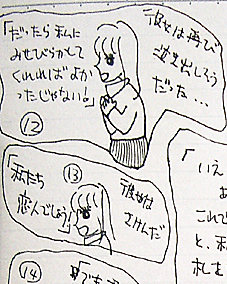 彼女は再び
泣き出しそう
だった…
「だったら私に
みせびらかして
くれればよか
ったじゃない!」
⑫
⑬
彼女は
さけんだ
「私たち
恋人でしょう」
⑭
「いえ
あ
これで
と、私
礼を